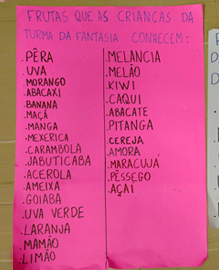 FRUTAS QUE AS CRIANÇAS DA
TURMA DA FANTASIA CONHECEM:
.PÊRA
.UVA
.MORANGO
.ABACAXI
.BANANA
.MAÇÃ
.MANGA
.MEXERICA
.CARAMBOLA
.JABUTICABA
.ACEROLA
.AMEIXA
.GOIABA
.UVA VERDE
.LARANJA
.MAMÃO
.LIMÃO
.MELANCIA
.MELÃO
.KIWI
.CAQUI
.ABACATE
.PITANGA
.CEREJA
.AMORA
.MARACUJÁ
.PÊSSEGO
.AÇAÍ